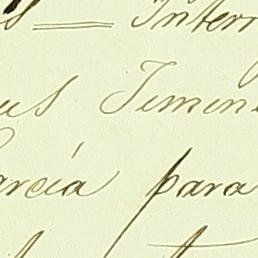 s = Intern
us Jimen
arcía para